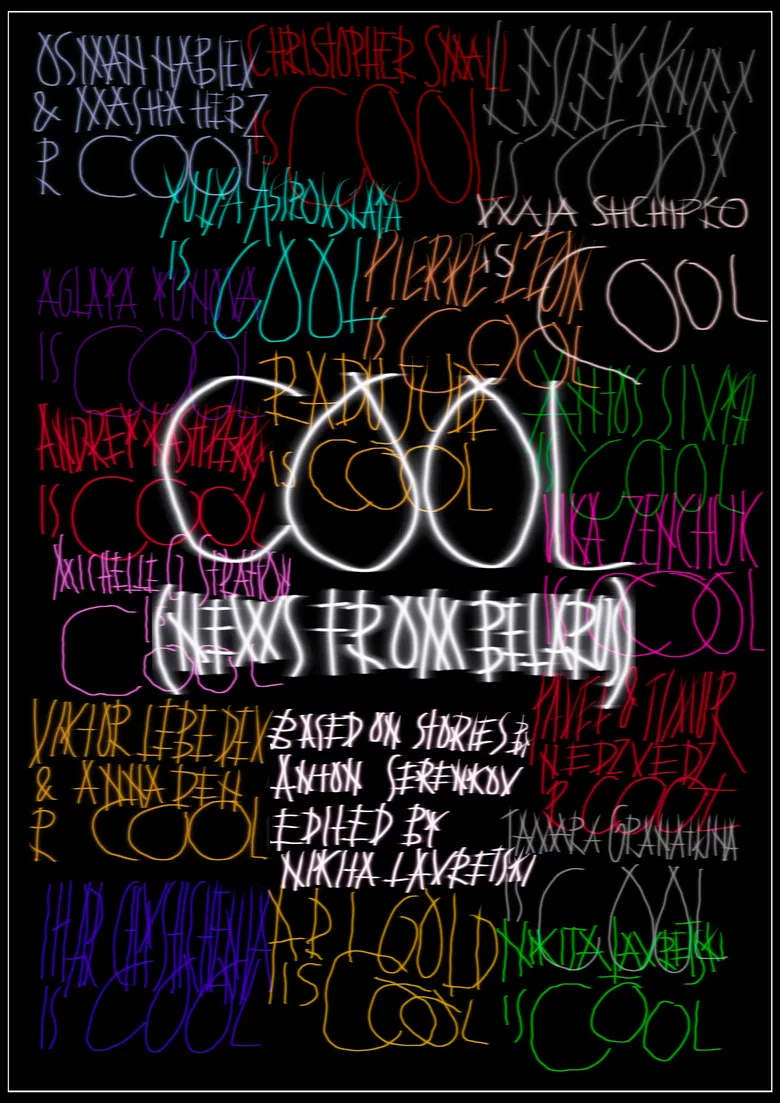 OSMAN NABIEV
& MASHA HERZ
R COOL
CHRISTOPHER SMALL
IS COOL
LESLEY
IS COOL
YULIYA
IS COOL
IS COOL
PIERRE LEON
IS COOL
AGLAYA
IS COOL
RADU JUDE
IS COOL
IS COOL
ANDREY
IS COOL
COOL
(NEWS FROM BELARUS)
ZENCHUK
IS COOL
MICHELLE
IS
COOL
VIKTOR LEBEDEV
& ANNA DEN
R COOL
BASED ON STORIES BY
ANTON SERENKOV
EDITED BY
NIKITA LAVRETSKI
PAVEL & TIMUR
R COOL
TAMARA GRANATKINA
IS COOL
IS COOL
ARI GOLD
IS COOL
NIKITA LAVRETSKI
IS COOL